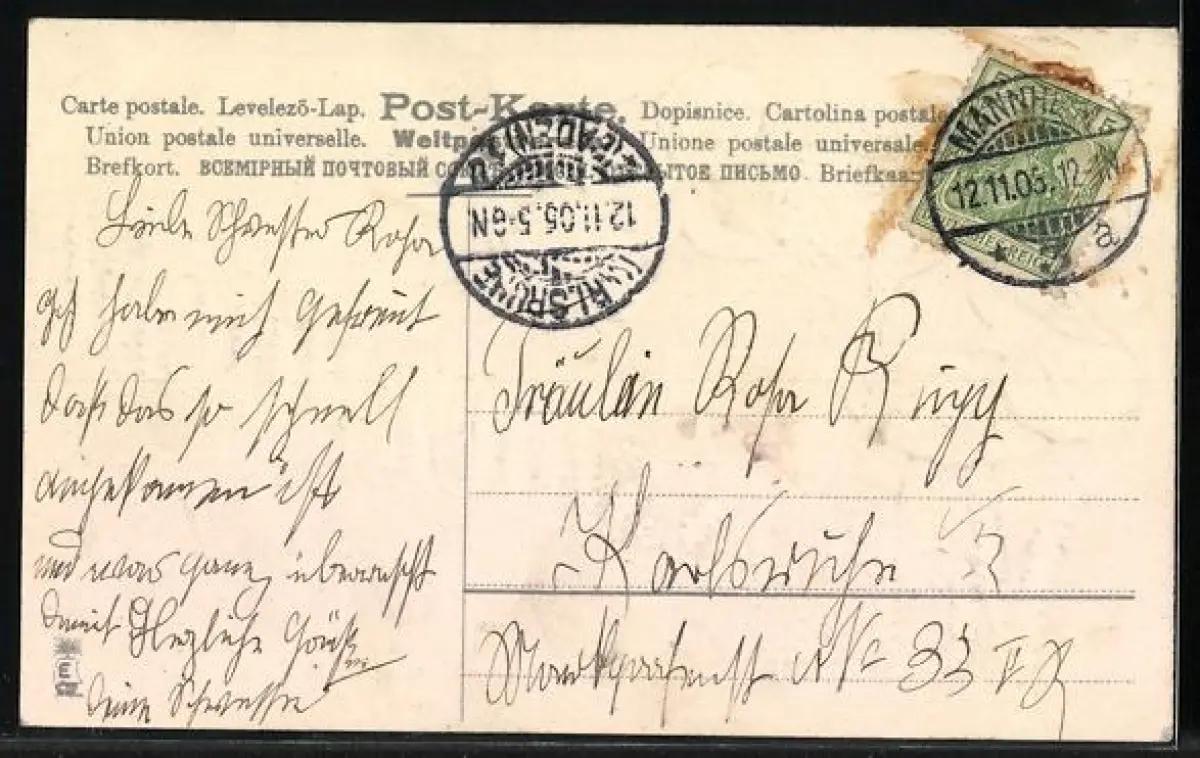 Carte postale. Levelező-Lap. Post-Karte. Dopisnice. Cartolina postale
Union postale universelle. Weltpo Unione postale universale.
Brefkort. ВСЕМІРНЫЙ ПОЧТОВЫЙ СО ЫТОЕ ПИСЬМО. Briefkaa
MANNHEIM
12.11.05. 12- N.
a
KARLSRUHE
12.11.05. 5-6N
(BADEN)
Liebe Schwester Rosa
Ich habe mich gefreut
daß das so schnell
angekommen ist
und war ganz überrascht
damit Herzliche Grüße
deine Schwester
Fräulein Rosa
Karlsruhe
No 33 II